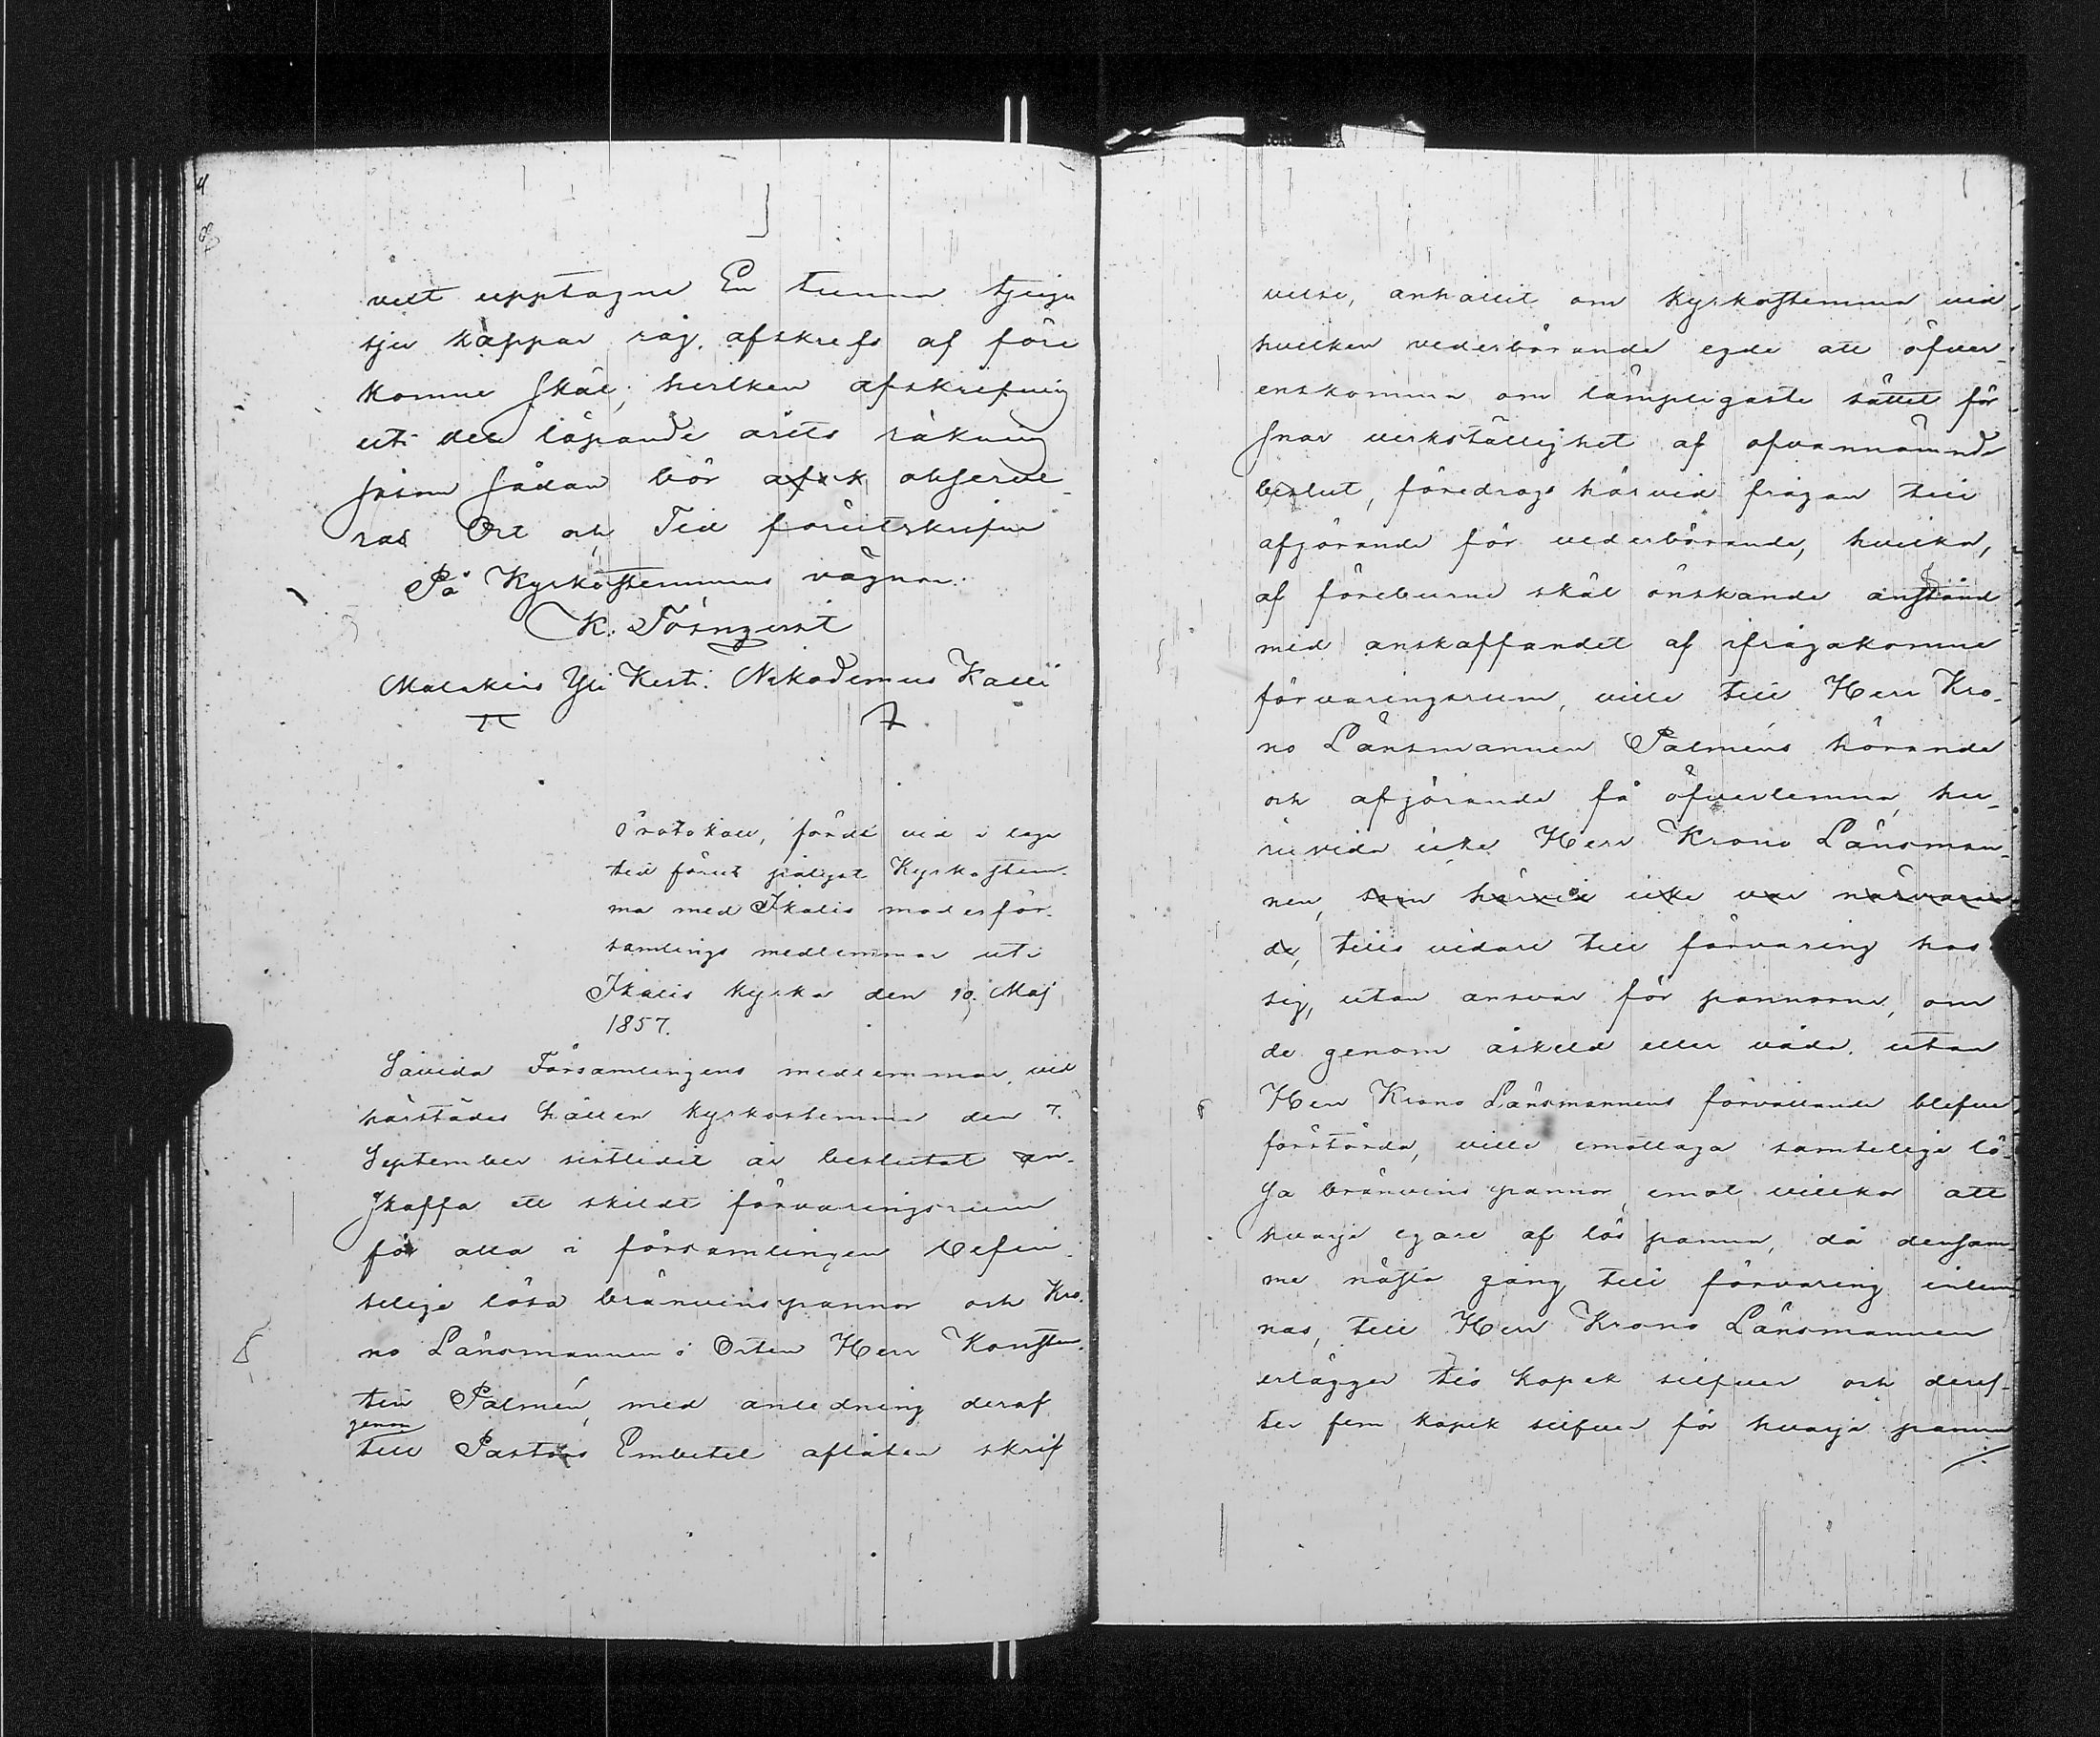 velt upptagne En tunna tjugu
sju kappar råg, afskrefs af före
komne skäl, hvilken afskrifning
uti det löpande årets räkning
såsom sådan bör afsk observe-
ras Ort och Tid förutskrifne
På Kyrkostemmans vägnar.
K. Törnqvist
Malakias Yli Kesti. Nikodemus Kalli
Protokoll, fördt vid i laga
tid förut pålyst Kyrkostem-
ma med Ikalis moderför-
samlings medlemmar uti
Ikalis kyrka den 10 Maj
1857.
Såvida Församlingens medlemmar, vid
härstädes hållen kyrkostemma den 7.
September sistlidit år beslutat an-
skaffa ett skildt förvaringsrum
för alla i församlingen befin-
telige lösa bränvinspannor och Kro-
no Länsmannen i Orten Herr Konstan-
tin Palmén, med anledning deraf
genom
till Pastors Embetet aflåten skrif
velse, anhållit om kyrkostemma vid
hvilken vederbörande egde att öfver-
enskomma om lämpligaste sättet för
snar verkställighet af ofvannämnde
beslut, föredrogs härvid frågan till
afgörande för vederbörande, hvilka,
af föreburne skäl önskande anstånd
med anskaffandet af ifrågakomne
förvaringsrum, ville till Herr Kro-
no Länsmannen Palméns hörande
och afgörande få öfverlemna, hu-
ruvida icke Herr Krono Länsman-
nen, som härvid icke var närvaran
de, tills vidare till förvaring hos
sig, utan ansvar för pannorna, om
de genom åskeld eller våda, utan
Herr Krono Länsmannens förvållande blefve
förstörda, ville emottaga samtelige lö-
sa bränvins pannor, emot villkor att
hvarje egare af lös panna, då densam-
me nästa gång till förvaring inlem-
nas, till Herr Krono Länsmannen
erlägger tio kopek silfver och deref-
ter fem kopek silfver för hvarje panna